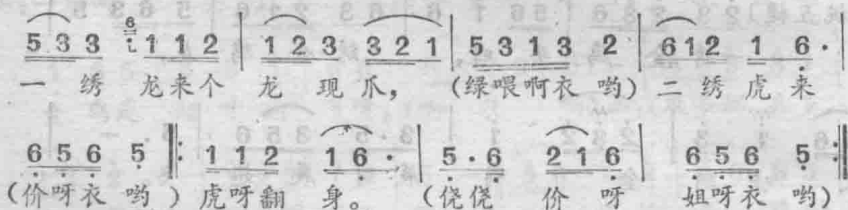 5 3 3 6 i 1 1 2 | 1 2 3 3 2 1 | 5 3 1 3 2 | 6 1 2 1 6 ·
一 绣 龙来个 龙 现 爪， (绿喂啊衣 哟) 二 绣 虎 来
6 5 6 5 ‖: 1 1 2 1 6 · | 5 · 6 2 1 6 | 6 5 6 5 :‖
(价呀衣 哟) 虎呀翻 身。 (侥侥 价 呀 姐呀衣 哟)